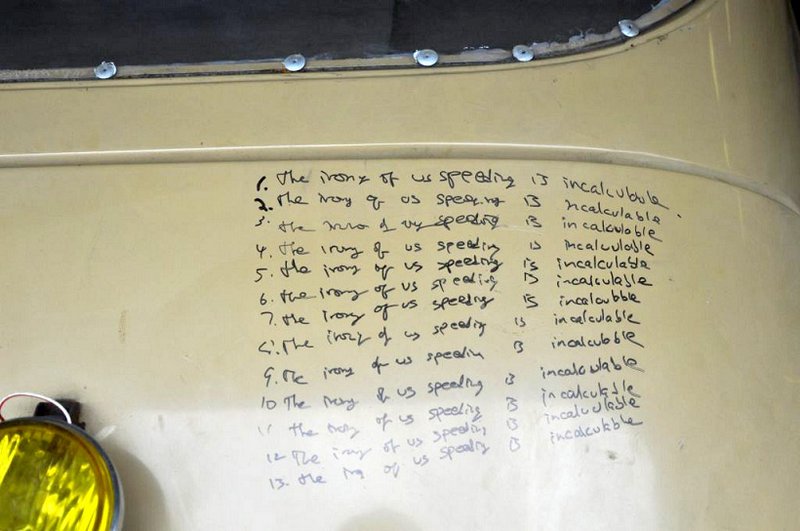 1. The irony of us speeding is incalcubule.
2. The irony of us speeding is incalculable
3. the irony of us speeding is incalculoble
4. The irony of us speeding is incalculable
5. the irony of us speeding is incalculable
6. the irony of us speeding is incalculable
7. the irony of us speeding is incalcubble
8. The irony of us speeding is incalculable
9. the irony of us speeding is incalcubble
10 The irony of us speeding is incalculable
11 the irony of us speeding is incalculable
12 The irony of us speeding is incaludlable
13. the irg of us speedig is incalcubble